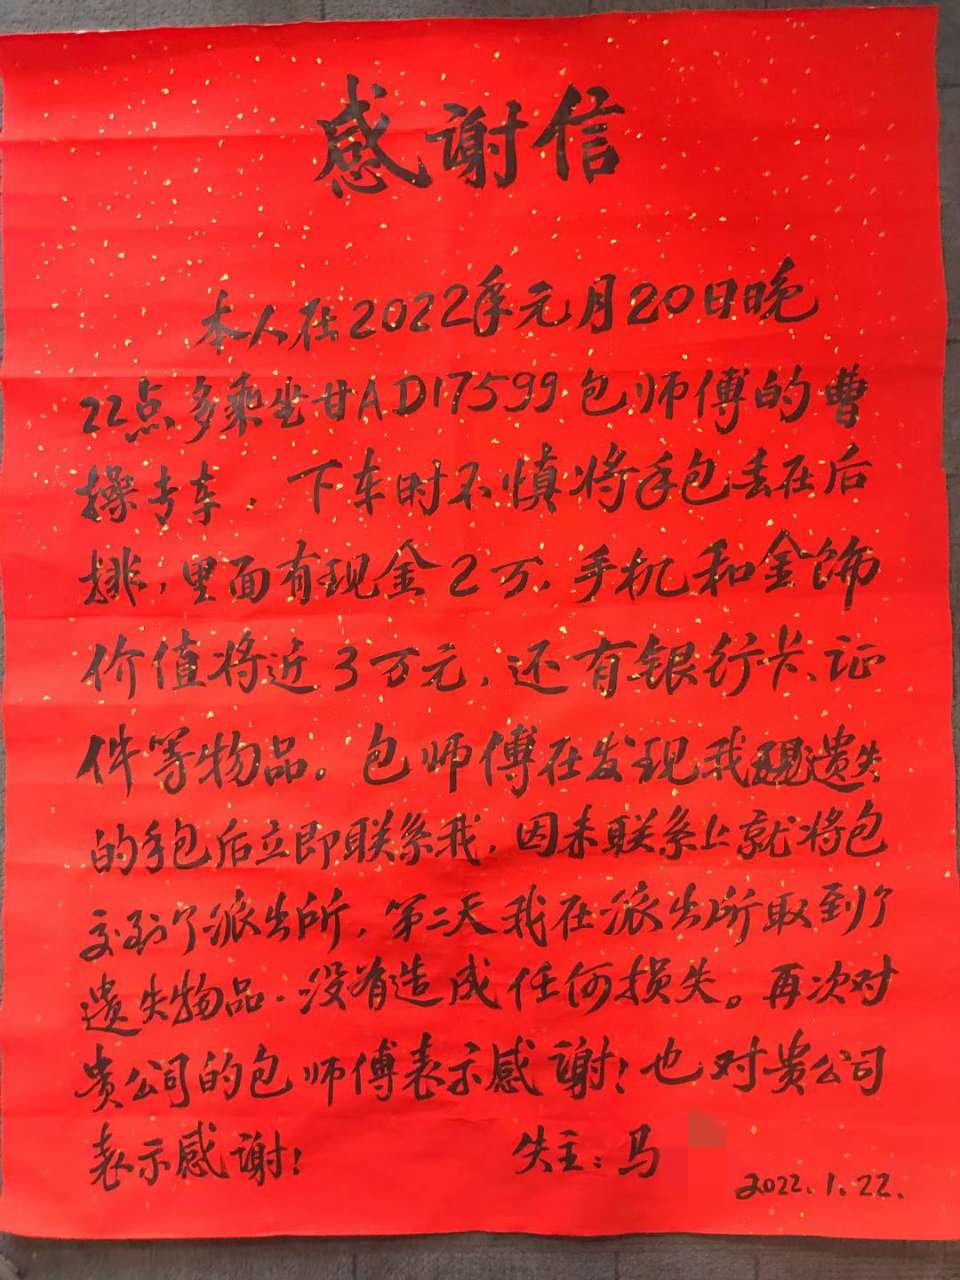 感谢信
本人在2022年元月20日晚
22点多乘坐甘AD17599包师傅的曹
操专车，下车时不慎将手包丢在后
排，里面有现金2万，手机和金饰
价值将近3万元，还有银行卡、证
件等物品。包师傅在发现我遗失
的手包后立即联系我，因未联系上就将包
交到了派出所，第二天我在派出所取到了
遗失物品，没有造成任何损失。再次对
贵公司的包师傅表示感谢！也对贵公司
表示感谢！ 失主：马
2022.1.22.